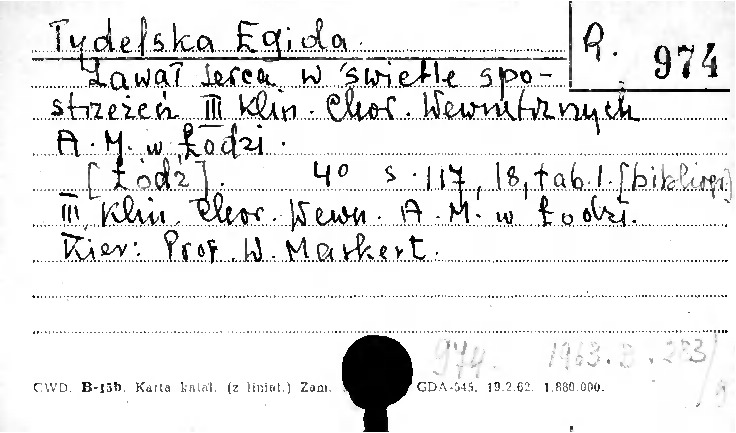 Tydelska Egida R. 974
Zawał serca w świetle spo-
strzeżeń III Klin. Chor. Wewnętrznych
A. M. w Łodzi.
[Łódź]. 4° s. 117, 18, tab 1. [bibliogr]
III Klin. Chor. Wewn. A. M. w Łodzi.
Kier: Prof. W. Markert.
974. 1963. B. 283/
CWD. B-15b. Karta katal. (z liniat.) Zam. GDA-545. 19.2.62. 1.880.000.